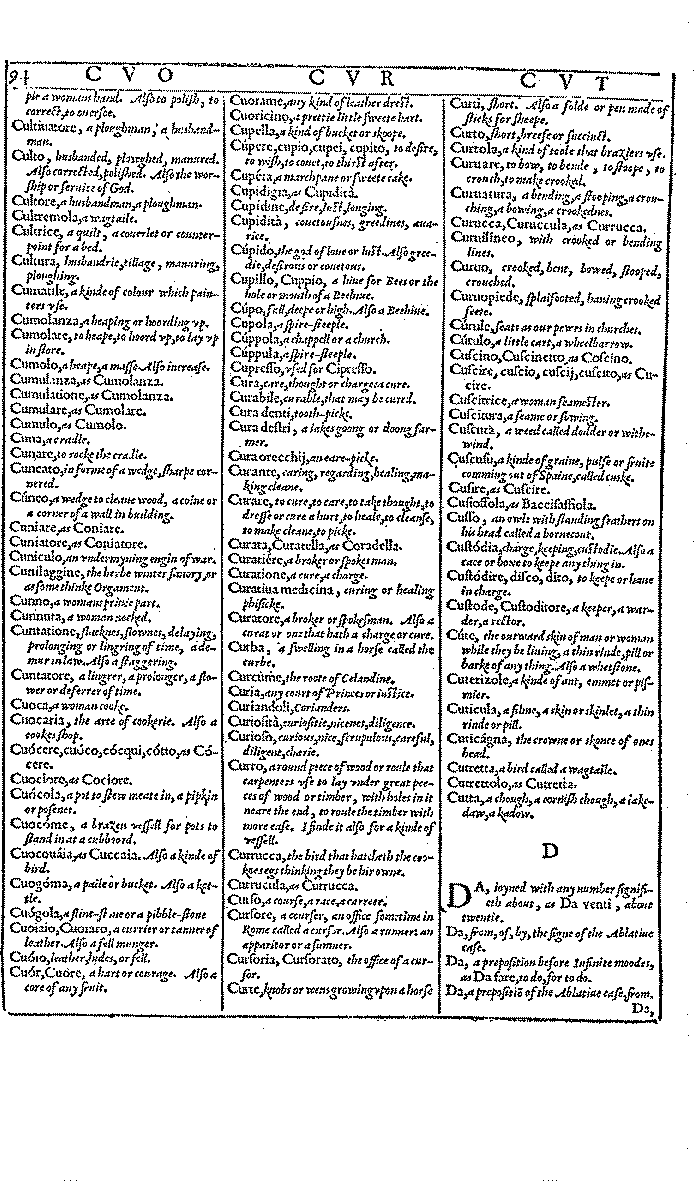 94 C V O C V R C V T
ple a womans hand. Also to polish, to
correct, to oversee.
Cultivatore, a ploughman, a husband-
man.
Culto, husbanded, ploughed, manured.
Also corrected, polished. Also the wor-
ship or service of God.
Cultore, a husbandman, a ploughman.
Cultremola, a wagtaile.
Cultrice, a quilt, a couerlet or counter-
point for a bed.
Cultura, husbandrie, tillage, manuring,
ploughing.
Cumatile, a kinde of colour which pain-
ters vse.
Cumolanza, a heaping or hoording vp.
Cumolare, to heape, to hoord vp, to lay vp
in store.
Cumolo, a heape, a masse. Also increase.
Cumulanza, as Cumolanza.
Cumulatione, as Cumolanza.
Cumulare, as Cumolare.
Cumulo, as Cumolo.
Cuna, a cradle.
Cunare, to rocke the cradle.
Cuneato, in forme of a wedge, sharpe cor-
nered.
Cúneo, a wedge to cleaue wood, a coine or
a corner of a wall in building.
Cuniare, as Coniare.
Cuniatore, as Coniatore.
Cunículo, an vndermyning engin of war.
Cunilaggine, the herbe winter sauory, or
as some thinke Organent.
Cunno, a womans priuie part.
Cunnuta, a woman
Cuntatione, slacknes, slownes, delaying,
prolonging or lingring of time, a de-
mur in law. Also a staggering.
Cuntatore, a lingrer, a prolonger, a slo-
wer or deferrer of time.
Cuoca, a woman cooke.
Cuocaria, the arte of cookerie. Also a
cookes shop.
Cuócere, cuóco, cócqui, cótto, as Có-
cere.
Cuociore, as Cociore.
Cuócola, a pot to stew meate in, a pipkin
or posenet.
Cuocóme, a brazen vessell for pots to
stand in at a cubbord.
Cuocouáia, as Cuccaia. Also a kinde of
bird.
Cuogóma, a paile or bucket. Also a ket-
tle.
Cuógola, a flint-stone or a pibble-stone
Cuoiaio, Cuoiaro, a currier or tanner of
leather. Also a fell munger.
Cuóio, leather, hides, or fell.
Cuór, Cuóre, a hart or courage. Also a
core of any fruit.
Cuorame, any kind of leather drest.
Cuoricino, a prettie little sweete hart.
Cupella, a kinde of bucket or skoope.
Cúpere, cupio, cupei, cupito, to desire,
to wish, to couet, to thirst after.
Cupéta, a marchpane or sweete cake.
Cupidigia, as Cupidità.
Cupidine, desire, lust, longing.
Cupidità, couetousnes, greedines, aua-
rice.
Cúpido, the god of loue or lust. Also gree-
die, desirous or couetous.
Cupillo, Cuppio, a hiue for Bees or the
hole or mouth of a Beehiue.
Cúpo, full, deepe or high. Also a Beehiue.
Cupola, a spire-steeple.
Cúppola, a chappell or a church.
Cúppula, a spire-steeple.
Cupresso, vsed for Cipresso.
Cura, care, thought or charge, a cure.
Curabile, curable, that may be cured.
Cura denti, tooth-picke.
Cura destri, a iakes going or doong far-
mer.
Cura orecchij, an eare-picke.
Curante, caring, regarding, healing, ma-
king cleane.
Curare, to cure, to care, to take thought, to
dresse or cure a hurt, to heale, to cleanse,
to make cleane, to picke.
Curata, Curatella, as Coradella.
Curatiére, a broker or spokes man.
Curatione, a cure, a charge.
Curatiua medicina, curing or healing
phisicke.
Curatore, a broker or spokesman. Also a
curat or one that hath a charge or cure.
Curba, a swelling in a horse called the
curbe.
Curcúme, the roote of Celandine.
Curia, any court of Princes or iustice.
Curiandoli, Corianders.
Curiosità, curiositie, nicenes, diligence.
Curioso, curious, nice, scrupulous, careful,
diligent, charie.
Curro, a round piece of wood or roule that
carpenters vse to lay vnder great pee-
ces of wood or timber, with holes in it
neare the end, to roule the timber with
more ease. I finde it also for a kinde of
vessell.
Currucca, the bird that hatcheth the coo-
koes egs thinking they be hir owne.
Currucula, as Currucca.
Curso, a course, a race, a carreere.
Cursore, a courser, an office sometime in
Rome called a cursor. Also a runner, an
apparitor or a sumner.
Cursoria, Cursorato, the office of a cur-
sor.
Curte, knobs or wens growing vpon a horse
Curti, short. Also a folde or pen made of
stickes for sheepe.
Curto, short, breefe or succinct.
Curtola, a kinde of toole that braziers vse.
Curuare, to bow, to bende, to stoope, to
crouch, to make crooked.
Curuatura, a bending, a stooping, a crou-
ching, a bowing, a crookednes.
Curucca, Curuccula, as Currucca.
Curuilineo, with crooked or bending
lines.
Curuo, crooked, bent, bowed, stooped,
crouched.
Curuopiede, splaifooted, hauing crooked
feete.
Cúrule, seate as our pewes in churches.
Cúrulo, a little cart, a wheelbarrow.
Cuscino, Cuscinetto, as Coscino.
Cuscire, cuscio, cuscij, cuscito, as Cu-
cire.
Cuscitrice, a woman seamester.
Cuscitura, a seame or sowing.
Cuscuta, a weed called dodder or withe-
wind.
Cuscusu, a kinde of graine, pulse or fruite
comming out of Spaine, called cuske.
Cusire, as Cuscire.
Cusoffola, as Baccisassiola.
Cusso, an owle with standing feathers on
his head called a hornecout.
Custódia, charge, keeping, custodie. Also a
case or boxe to keepe any thing in.
Custódire, disco, dito, to keepe or haue
in charge.
Custode, Custoditore, a keeper, a war-
der, a rector.
Cúte, the outward skin of man or woman
while they be liuing, a thin rinde, pill or
barke of any thing. Also a whetstone.
Cuterizole, a kinde of ant, emmet or pis-
mier.
Cuticula, a filme, a skin or skinlet, a thin
rinde or pill.
Cuticágna, the crowne or skonce of ones
head.
Cutretta, a bird called a wagtaile.
Cutrettolo, as Cutretta.
Cutta, a chough, a cornish chough, a iake-
daw, a kadow.
D
DA, ioyned with any number signifi-
eth about, as Da venti, about
twentie.
Da, from, of, by, the signe of the Ablatiue
case.
Da, a preposition before Infinite moodes,
as Da fare, to do, for to do.
Da, a prepositiõ of the Ablatiue case, from.
Da,